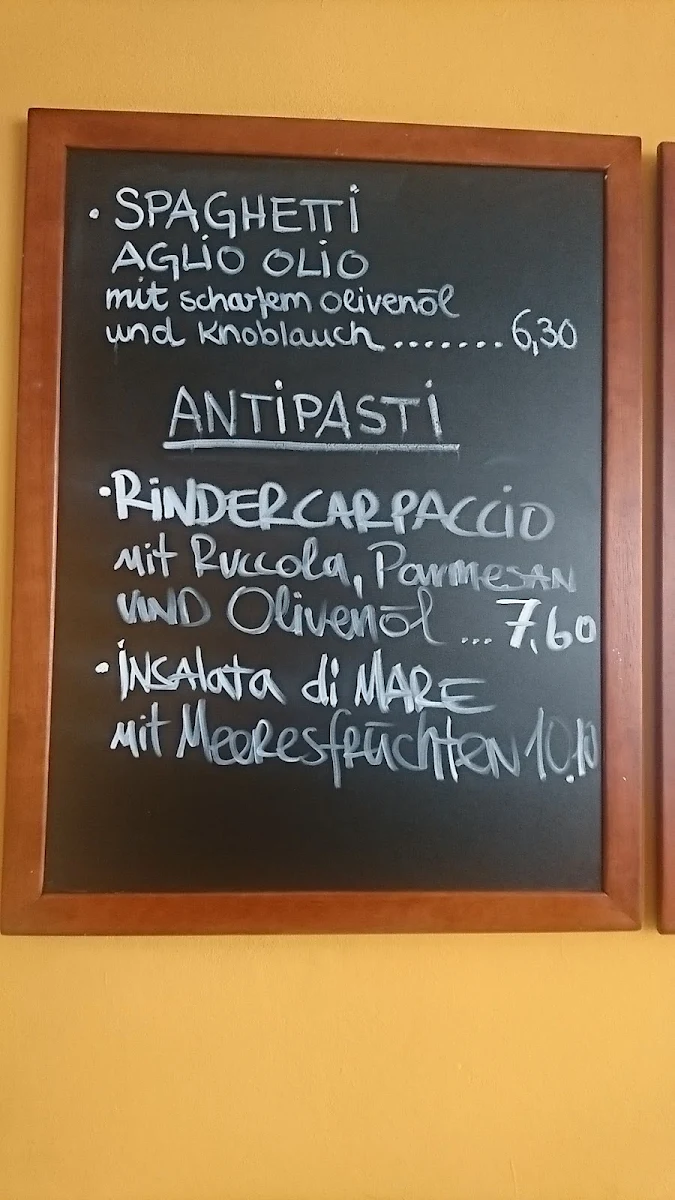 • SPAGHETTI
AGLIO OLIO
mit scharfem olivenöl
und Knoblauch ....... 6,30
ANTIPASTI
• RINDERCARPACCIO
mit Ruccola, Parmesan
UND Olivenöl ... 7,60
• INSAlata di MARE
mit Meeresfrüchten 10,10